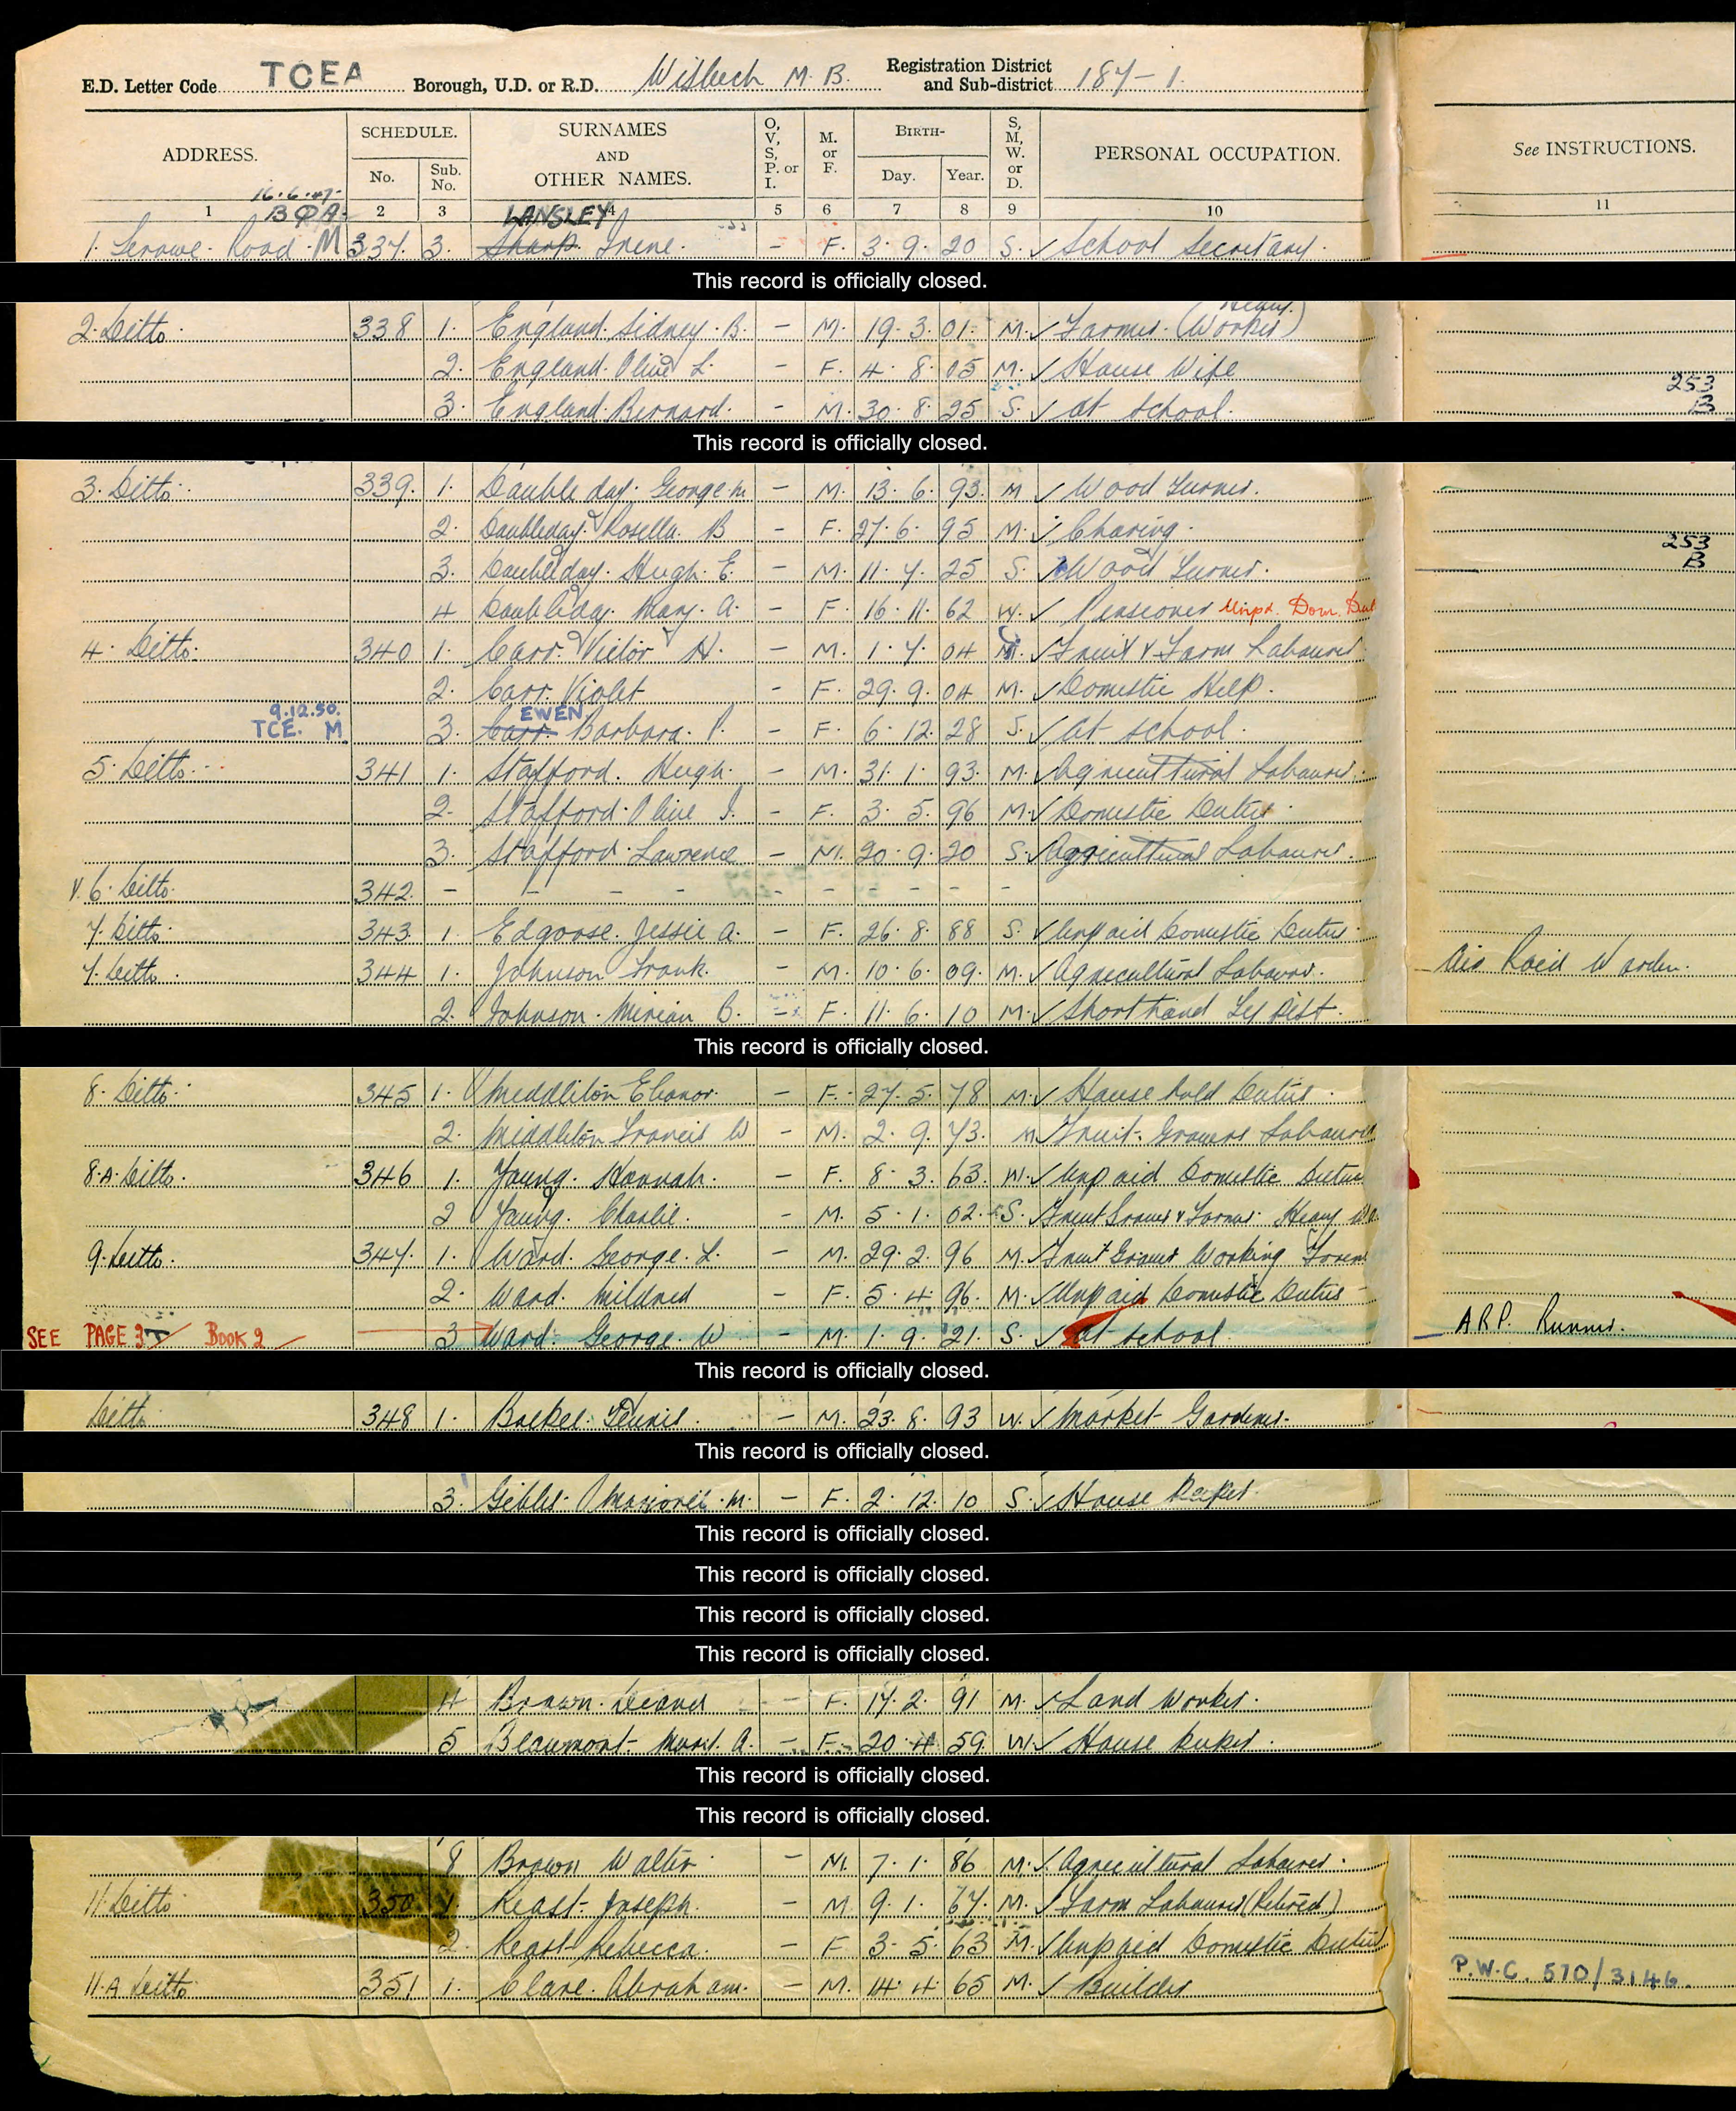 E.D. Letter Code TCEA Borough, U.D. or R.D. Wisbech M. B. Registration District and Sub-district 187-1.
ADDRESS. SCHEDULE. No. Sub. No. SURNAMES AND OTHER NAMES. O, V, S, P. or I. M. or F. BIRTH- Day. Year. S, M, W. or D. PERSONAL OCCUPATION. See INSTRUCTIONS.
16.6.47. LANSLEY
1 2 3 4 5 6 7 8 9 10 11
1. Road M 337. 3. Sharp Irene. - F. 3. 9. 20 S. School Secretary.
This record is officially closed.
2. Ditto. 338 1. England. Sidney. B. - M. 19. 3. 01. M. Farmer. (Heavy. Worker)
2. England. Olive L. - F. 4. 8. 05 M. House Wife
3. England. Bernard. - M. 30. 8. 25 S. at school. 253 B
This record is officially closed.
3. Ditto. 339. 1. Doubleday. George M - M. 13. 6. 93. M Wood Turner.
2. Doubleday. Rosella. B - F. 27. 6. 95 M. Charing.
3. Doubleday. Hugh. E. - M. 11. 7. 25 S. Wood Turner. 253 B
4 Doubleday. Mary. A. - F. 16. 11. 62 W. Pensioner Unpd. Dom. Dut
4. Ditto. 340 1. Carr. Victor H. - M. 1. 7. 04 M. Fruit & Farm Labourer.
2. Carr. Violet - F. 29. 9. 04 M. Domestic Help.
9.12.50. TCE. M. 3. Carr. EWEN Barbara. P. - F. 6. 12. 28 S. at school.
5. Ditto. 341 1. Stafford. Hugh. - M. 31. 1. 93. M. Agricultural Labourer.
2. Stafford. Olive I. - F. 3. 5. 96 M. Domestic Duties.
3. Stafford. Lawrence - M. 20. 9. 20 S. Agricultural Labourer.
V. 6. Ditto. 342. - - - - - - - - - -
7. Ditto. 343 1. Edgoose. Jessie A. - F. 26. 8. 88 S. Unpaid Domestic Duties.
7. Ditto. 344 1. Johnson Frank. - M. 10. 6. 09. M. Agricultural Labourer. Air Raid Warden.
2. Johnson. Miriam B. - F. 11. 6. 10 M. Shorthand Typist.
This record is officially closed.
8. Ditto. 345 1. Middleton Eleanor. - F. 27. 5. 78 M. House hold Duties.
2. Middleton Francis W - M. 2. 9. 73. M Fruit. Growers Labourer
8.A. Ditto. 346 1. Young. Hannah. - F. 8. 3. 63. W. Unpaid Domestic Duties
2 Young. Charlie. - M. 5. 1. 02. S. Fruit Grower & Farmer. Heavy
9. Ditto. 347. 1. Ward. George. L. - M. 29. 2. 96 M. Fruit Grower Working Forem
2. Ward. Mildred - F. 5. 4. 96. M. Unpaid Domestic Duties
SEE PAGE 3 BOOK 2 3 Ward. George. W - M. 1. 9. 21. S. at school. A.R.P. Runner.
This record is officially closed.
Ditto 348 1. Dennis. - M. 23. 8. 93 W. Market Gardener.
This record is officially closed.
3. Marjorie. M. - F. 2. 12. 10 S. House Keeper.
This record is officially closed.
This record is officially closed.
This record is officially closed.
This record is officially closed.
4 Brown. - F. 17. 2. 91 M. Land Worker.
5 Beaumont A. - F. 20 4 59 W. House Keeper.
This record is officially closed.
This record is officially closed.
8 Brown Walter. - M. 7. 1. 86 M. Agricultural Labourer.
11. Ditto 350 1. Keast. Joseph. - M 9. 1. 67. M. Farm Labourer (Retired)
2. Keast Rebecca. - F 3. 5. 63 M. Unpaid Domestic Duties
11.A Ditto 351 1. Clare. Abraham. - M. 14. 4 65 M. Builder P.W.C. 570/3146.